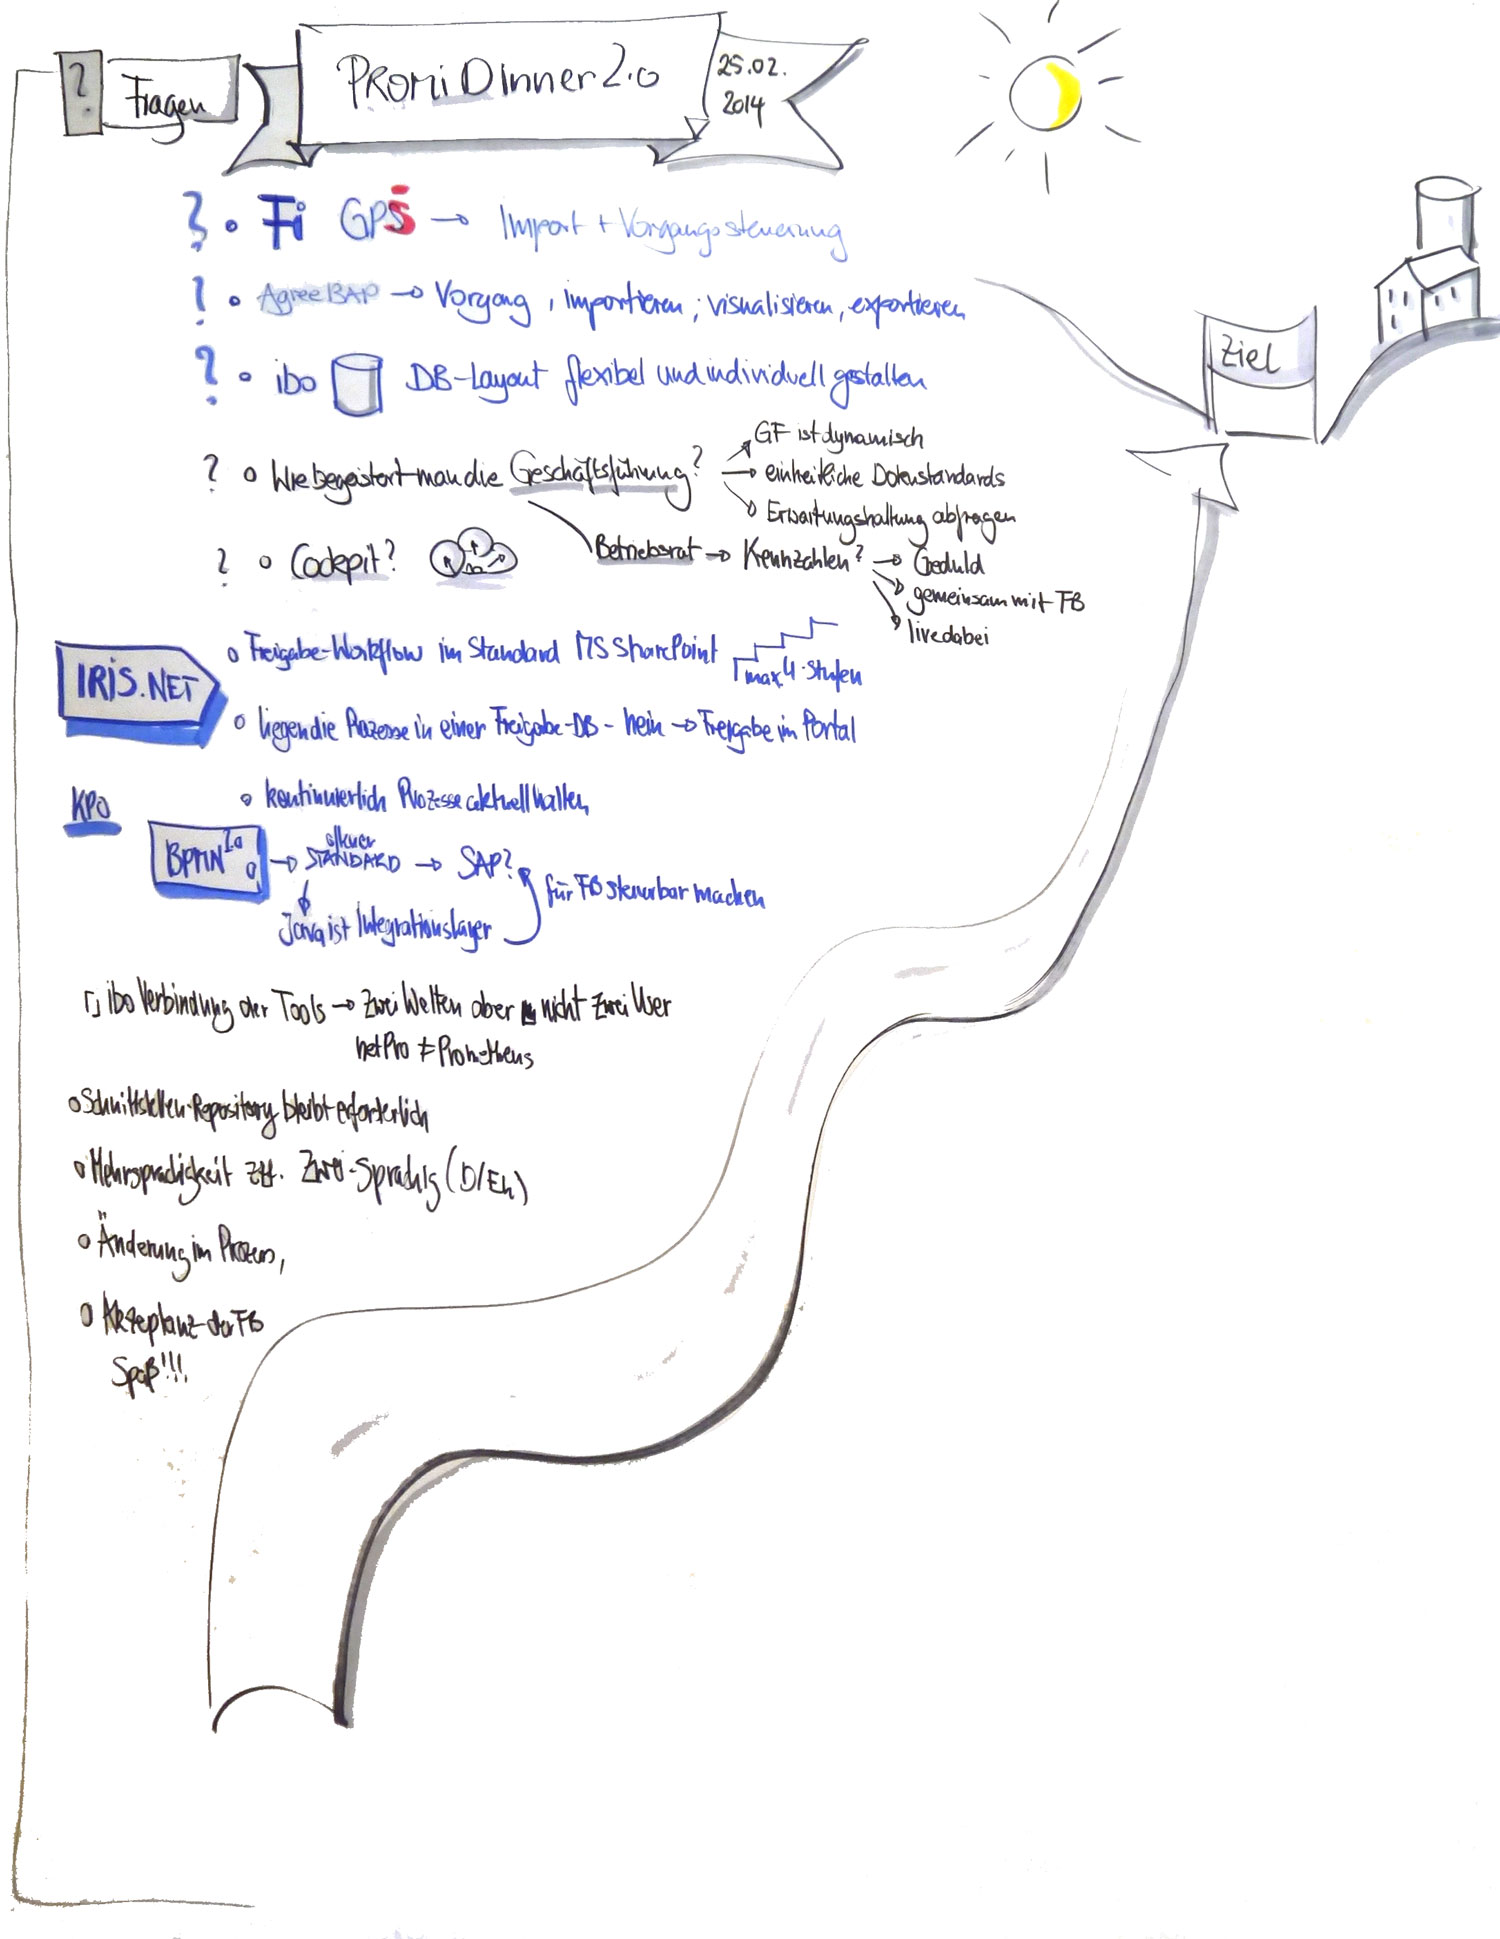 ? Fragen
PROMi DINNER 2.0
25.02.
2014
? • Fi GPS → Import + Vorgangssteuerung
? • AgreeBAP → Vorgang, importieren; visualisieren, exportieren
? • ibo DB-Layout flexibel und individuell gestalten
? ○ Wie begeistert man die Geschäftsführung?
→ GF ist dynamisch
→ einheitliche Dokustandards
→ Erwartungshaltung abfragen
Betriebsrat → Kennzahlen? → Geduld
→ gemeinsam mit FB
→ live dabei
? ○ Cockpit?
Ziel
IRIS.NET
○ Freigabe-Workflow im Standard MS SharePoint
max 4-Stufen
○ liegen die Prozesse in einer Freigabe-DB - nein → Freigabe im Portal
KPO
○ kontinuierlich Prozesse aktuell halten
BPMN 2.0 → STANDARD → SAP?
Java ist Integrationslayer
für FB steuerbar machen
ibo Verbindung der Tools → Zwei Welten aber nicht zwei User
netPro ≠ Prometheus
○ Schnittstellen-Repository bleibt erforderlich
○ Mehrsprachigkeit zzt. Zwei-Sprachig (D/En)
○ Änderung im Prozess,
○ Akzeptanz der FB
Spaß!!!